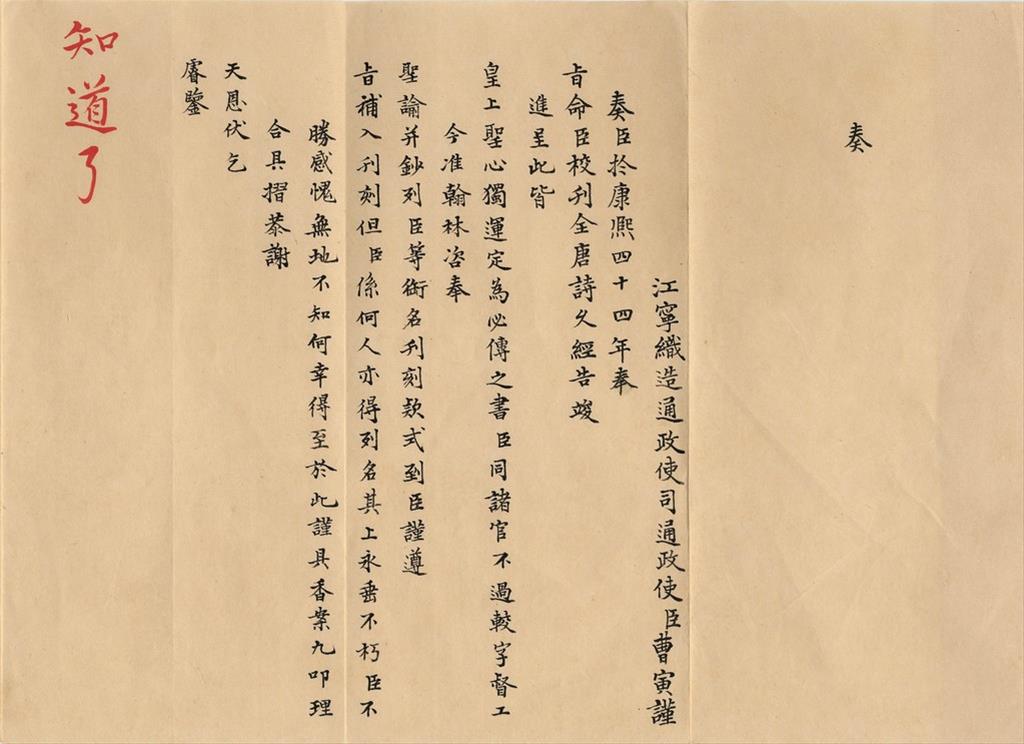 奏
江寧織造通政使司通政使臣曹寅謹
奏臣於康熙四十四年奉
旨命臣校刊全唐詩久經告竣
進呈此皆
皇上聖心獨運定為必傳之書臣同諸官不過較字督工
今准翰林咨奉
聖諭并鈔列臣等銜名刊刻欵式到臣謹遵
旨補入刊刻但臣係何人亦得列名其上永垂不朽臣不
勝感愧無地不知何幸得至於此謹具香案九叩理
合具摺恭謝
天恩伏乞
睿鑒
知道了